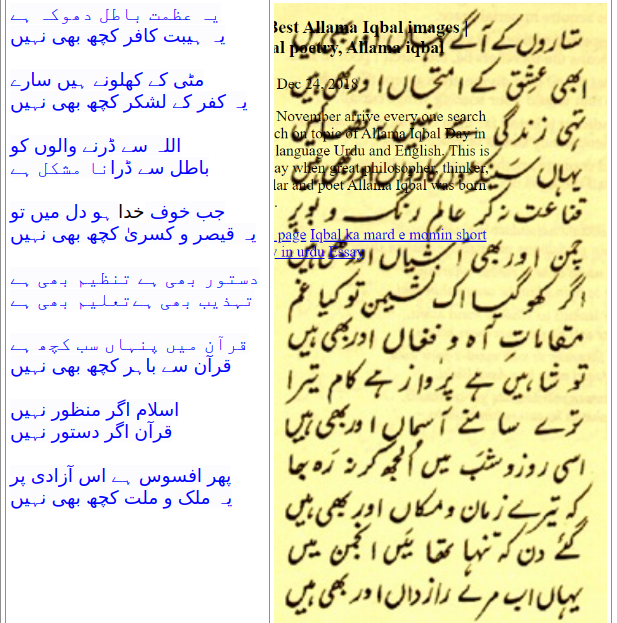 یہ عظمت باطل دھوکہ ہے
یہ ہیبت کافر کچھ بھی نہیں
مٹی کے کھلونے ہیں سارے
یہ کفر کے لشکر کچھ بھی نہیں
اللہ سے ڈرنے والوں کو
باطل سے ڈرانا مشکل ہے
جب خوف خدا ہو دل میں تو
یہ قیصر و کسریٰ کچھ بھی نہیں
دستور بھی ہے تنظیم بھی ہے
تہذیب بھی ہےتعلیم بھی ہے
قرآن میں پنہاں سب کچھ ہے
قرآن سے باہر کچھ بھی نہیں
اسلام اگر منظور نہیں
قرآن اگر دستور نہیں
پھر افسوس ہے اس آزادی پر
یہ ملک و ملت کچھ بھی نہیں
Best Allama Iqbal images |
al poetry, Allama iqbal
Dec 24, 2018
November arrive every one search
ch on topic of Allama Iqbal Day in
language Urdu and English. This is
ay when great philosopher, thinker,
lar and poet Allama Iqbal was born
.
page Iqbal ka mard e momin short
y in urdu Essay
ستاروں کے آگے جہاں اور بھی ہیں
ابھی عشق کے امتحاں اور بھی ہیں
تہی زندگی سے نہیں یہ فضائیں
یہاں سینکڑوں کارواں اور بھی ہیں
قناعت نہ کر عالمِ رنگ و بو پر
چمن اور بھی آشیاں اور بھی ہیں
اگر کھو گیا اک نشیمن تو کیا غم
مقاماتِ آہ و فغاں اور بھی ہیں
تو شاہیں ہے پرواز ہے کام تیرا
ترے سامنے آسماں اور بھی ہیں
اسی روز و شب میں اُلجھ کر نہ رہ جا
کہ تیرے زمان و مکاں اور بھی ہیں
گئے دن کہ تنہا تھا میں انجمن میں
یہاں اب مرے رازداں اور بھی ہیں